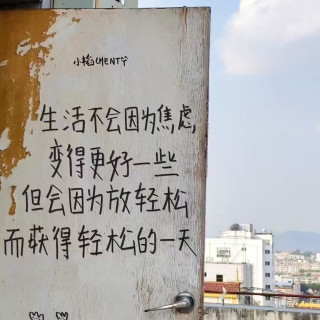 小楷CHENTY
生活不会因为焦虑,
变得更好一些
但会因为放轻松
而获得轻松的一天